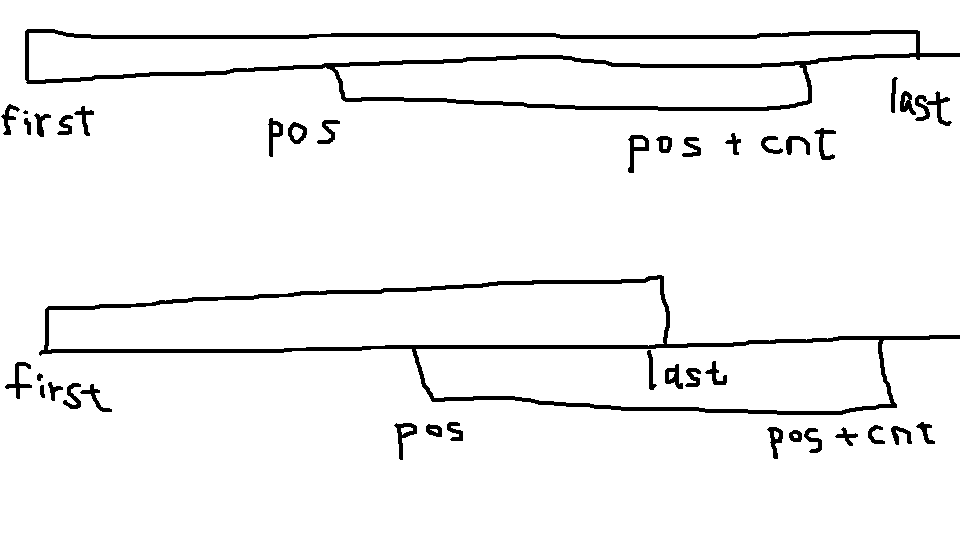 first
pos
pos + cnt
last
first
pos
last
pos + cnt